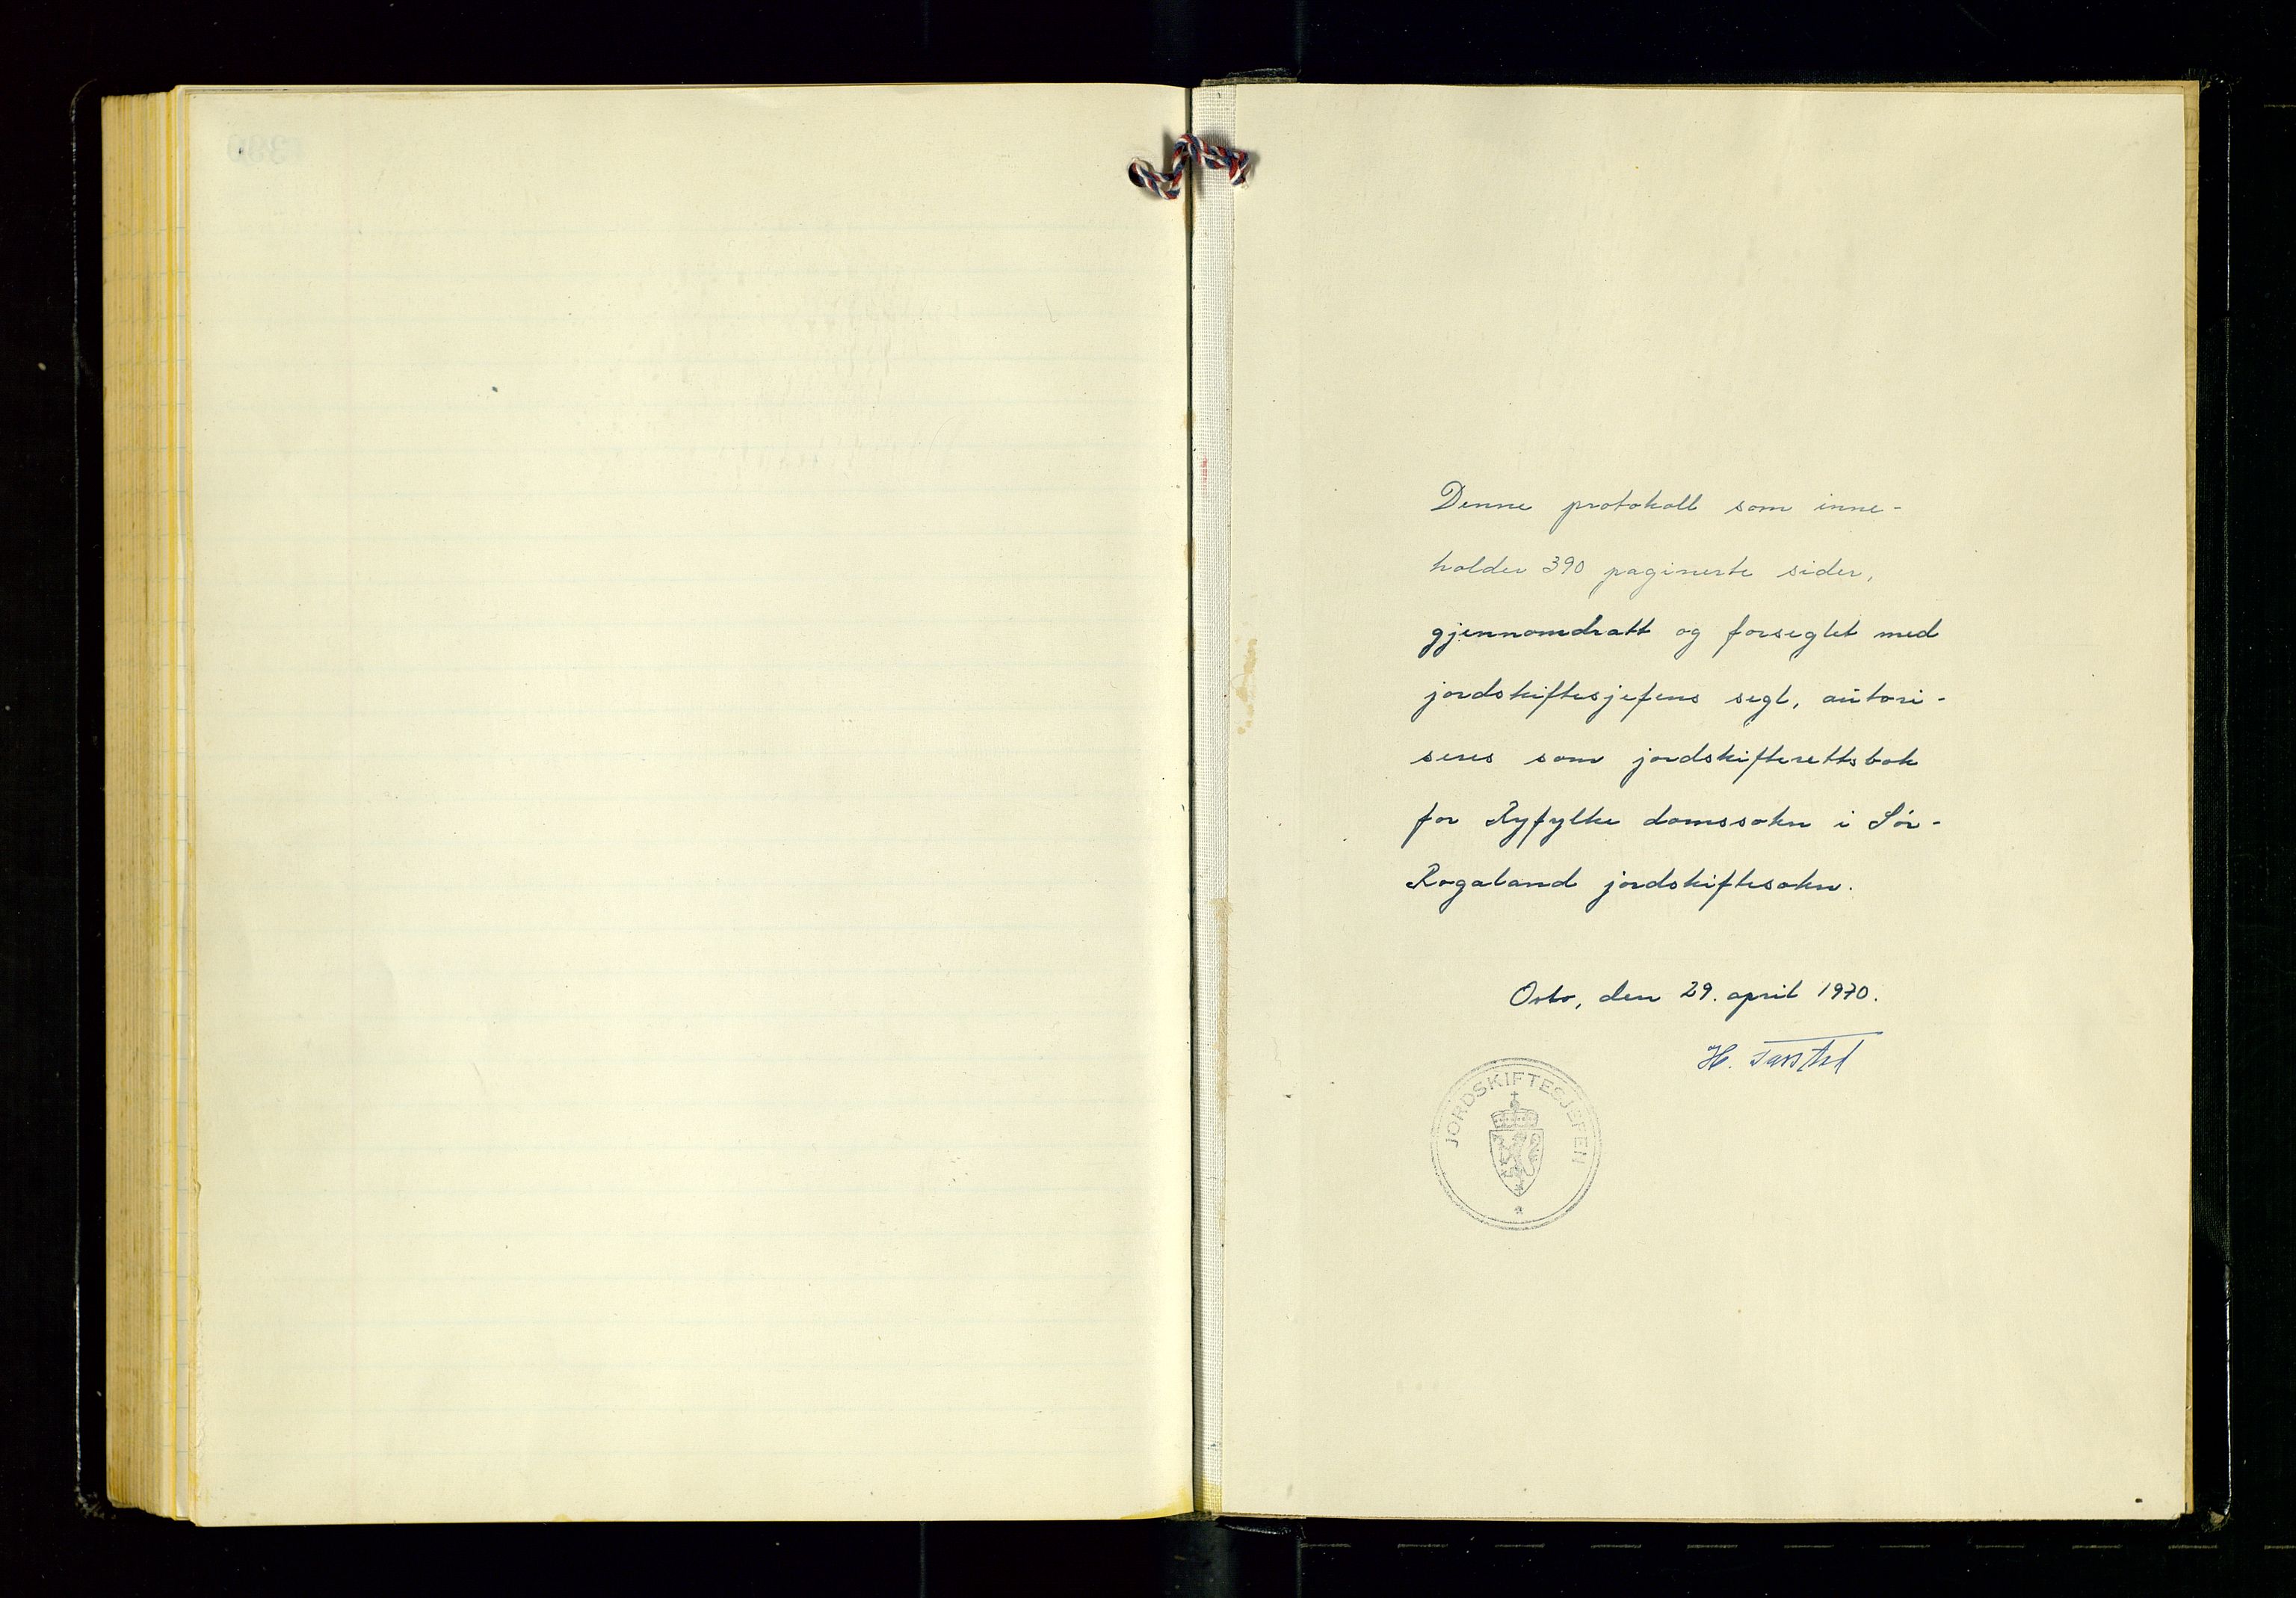 Denne protokoll som inne-
holder 390 paginerte sider,
gjennomdratt og forseglet med
jordskiftesjefens segl, autori-
seres som jordskifterettsbok
for Ryfylke domssokn i Sør-
Rogaland jordskiftesokn.
Oslo, den 29. april 1970.
H.
JORDSKIFTESJEFEN